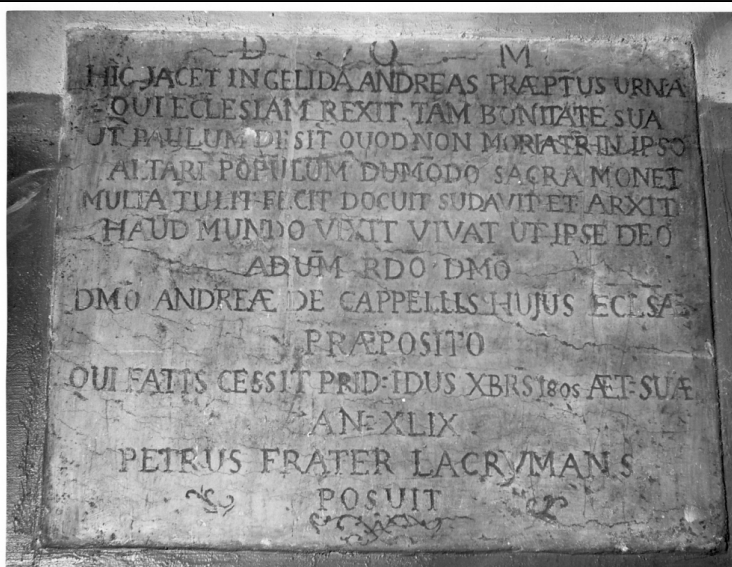 D. O. M
HIC JACET IN GELIDA ANDREAS PRÆPTUS URNA
QUI ECLESIAM REXIT TAM BONITATE SUA
UT PAULUM DESIT QUOD NON MORIATR IN IPSO
ALTARI POPULUM DUMODO SACRA MONET
MULTA TULIT FECIT DOCUIT SUDAVIT ET ARXIT
HAUD MUNDO VIXIT VIVAT UT IPSE DEO
ADUM RDO DMO
DMO ANDREÆ DE CAPPELLIS HUJUS ECLSÆ
PRÆPOSITO
QUI FATIS CESSIT PRID: IDUS XBRS 1805 ÆT: SUÆ
AN: XLIX
PETRUS FRATER LACRYMANS
POSUIT